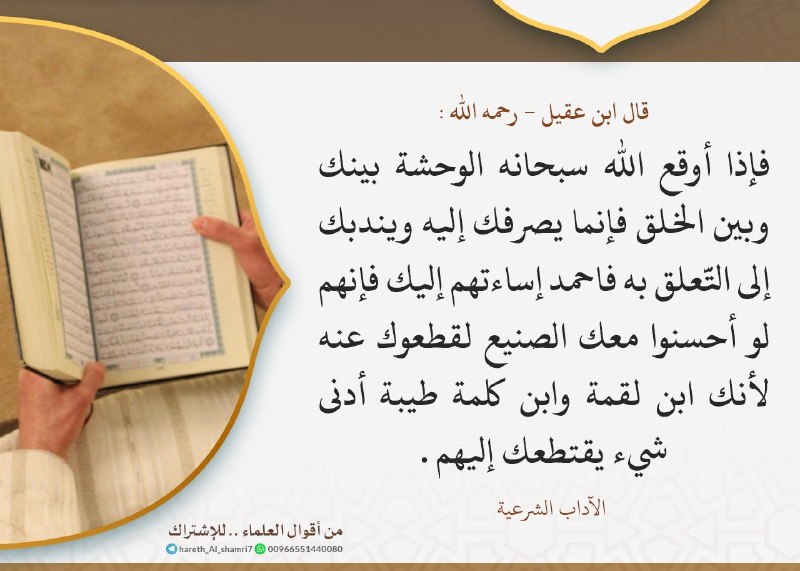 قال ابن عقيل - رحمه الله :
فإذا أوقع الله سبحانه الوحشة بينك
وبين الخلق فإنما يصرفك إليه ويندبك
إلى التّعلق به فاحمد إساءتهم إليك فإنهم
لو أحسنوا معك الصنيع لقطعوك عنه
لأنك ابن لقمة وابن كلمة طيبة أدنى
شيء يقتطعك إليهم .
الآداب الشرعية
من أقوال العلماء .. للإشتراك
hareth_Al_shamri7 00966551440080